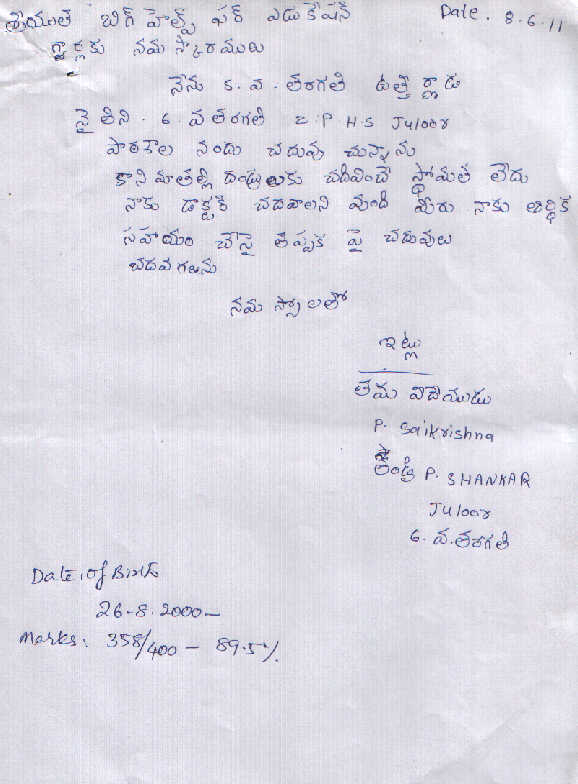 శ్రీయుత బిగ్ హెల్ప్ ఫర్ ఎడుకేషన్ Date. 8.6.11
గార్లకు నమస్కారములు
నేను 5. వ. తరగతి ఉత్తీర్ణుడ
నైతిని. 6. వ తరగతి Z.P.H.S Juloor
పాఠశాల నందు చదువు చున్నాను
కాని మా తల్లి దండ్రులకు చదివించే స్థోమత లేదు
నాకు డాక్టర్ చదవాలని వుంది మీరు నాకు ఆర్థిక
సహాయం చేస్తే తప్పక పై చదువులు
చదవగలను
నమస్సులతో
ఇట్లు
తమ విదేయుడు
P. Saikrishna
తండ్రి P. SHANKAR
Juloor
6. వ. తరగతి
Date of Birth
26-8.2000-
Marks: 358/400 - 89.5%